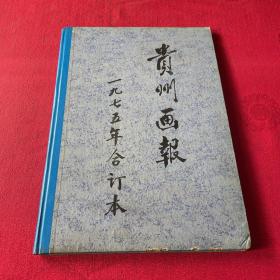 貴州画報
一九七五年合订本